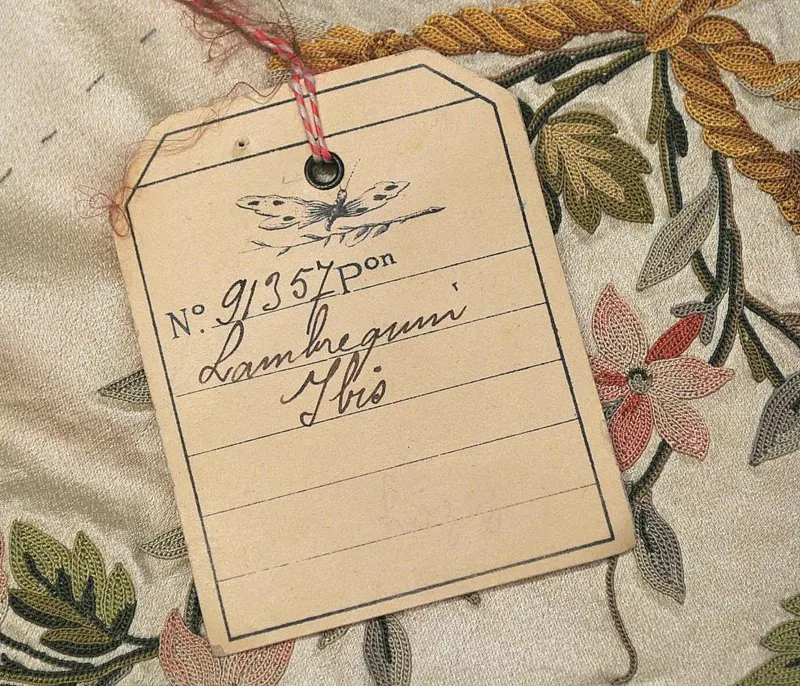 Nº. 91357 Pon
Lambrequini
Ibis